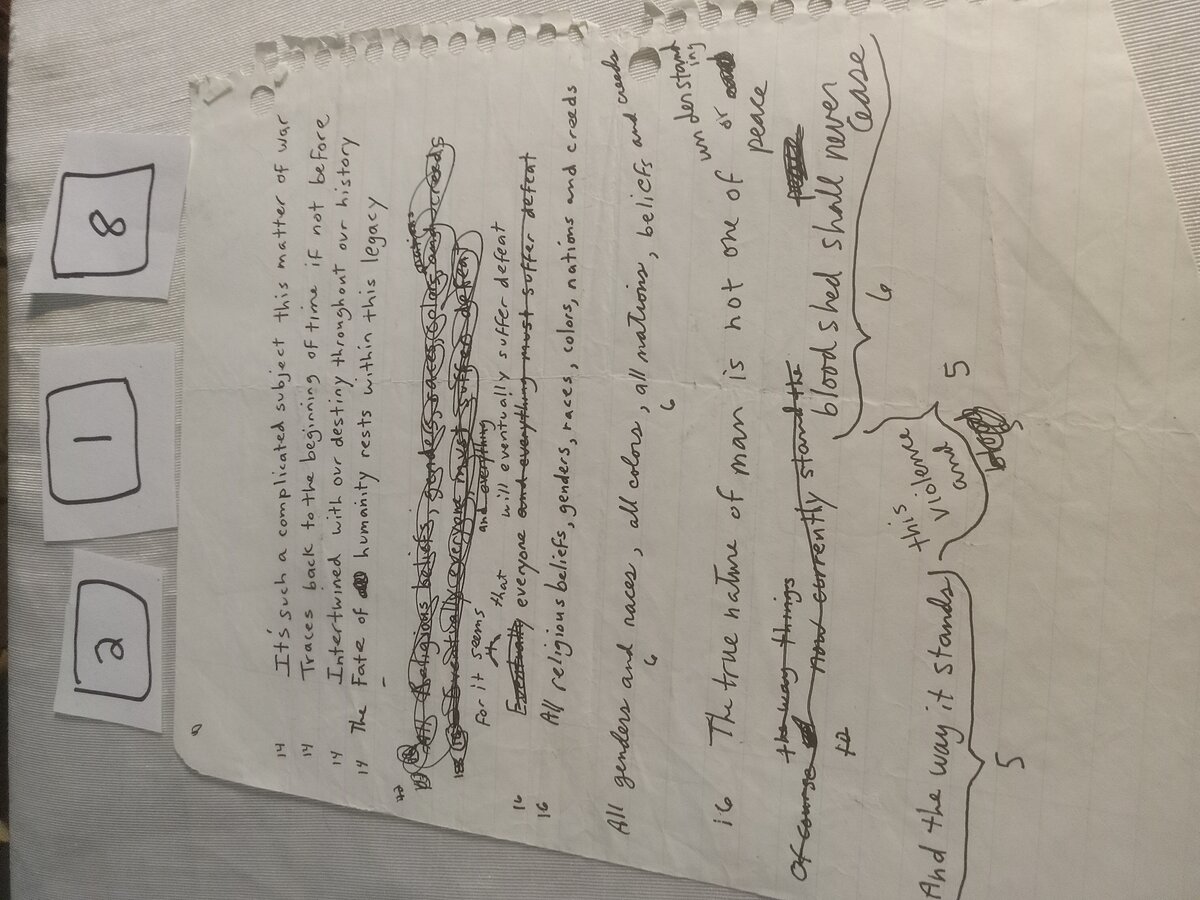 2
1
8
14 It's such a complicated subject this matter of war
14 Traces back to the beginning of time if not before
14 Intertwined with our destiny throughout our history
14 The Fate of humanity rests within this legacy
All Religious beliefs, genders, races, colors, and creeds
eventually everyone must suffer defeat
and everything
for it seems that will eventually suffer defeat
16 Eventually everyone and everything must suffer defeat
16 All religious beliefs, genders, races, colors, nations and creeds
All genders and races, all colors, all nations, beliefs and creeds
6 6
understanding
16 The true nature of man is not one of or
peace
the way things
Of course now currently stand the
12
bloodshed shall never cease
6
this violence and
5
And the way it stands
5